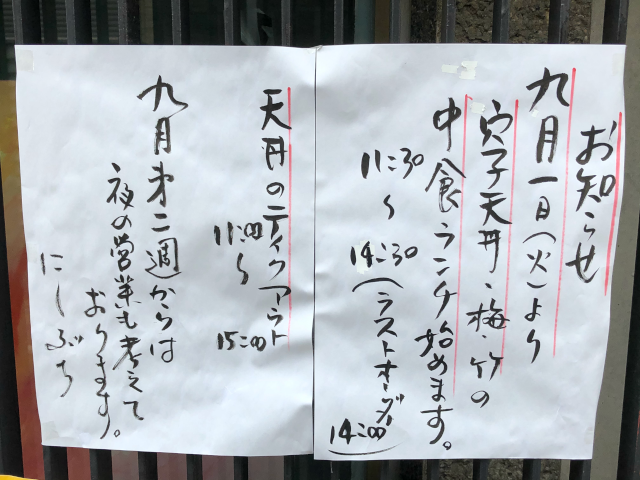 お知らせ
九月一日(火)より
穴子天丼・梅・竹の
中食ランチ始めます。
11:30
〜
14:30(ラストオーダー
14:00)
天丼のテイクアウト
11:00
〜
15:00
九月才二週からは
夜の営業も考えて
おります。
にしぶち